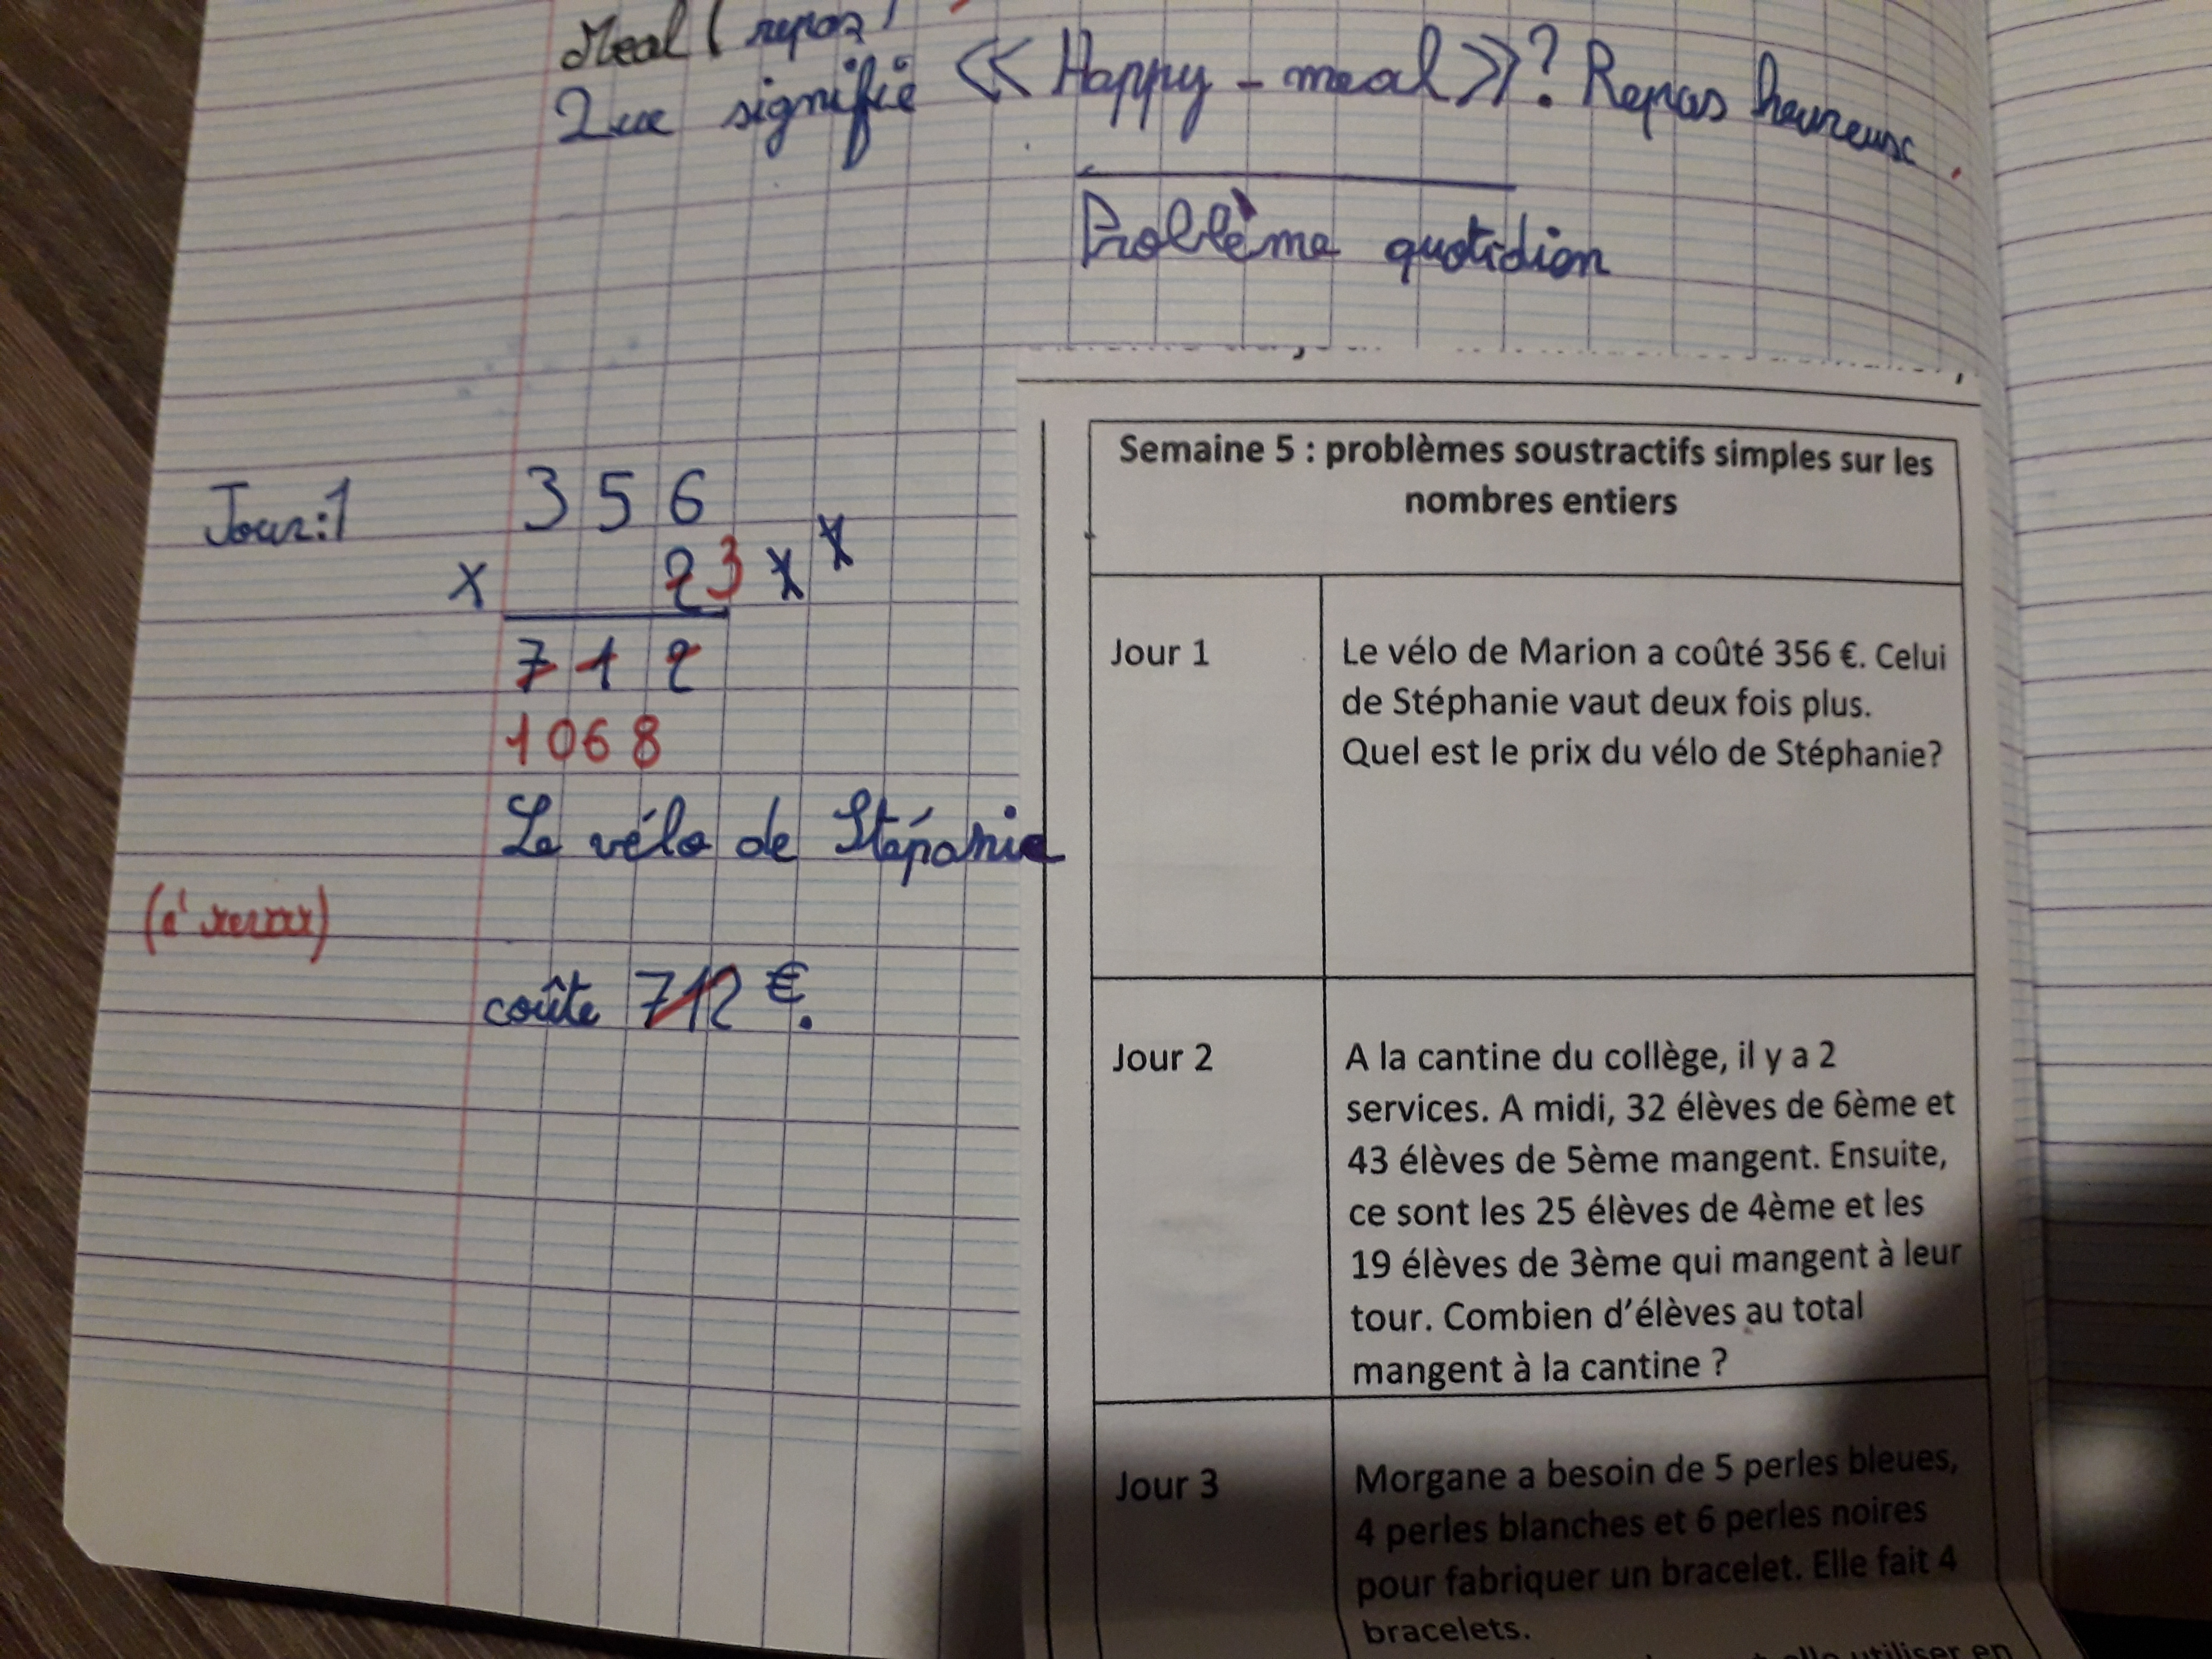 Meal ( repas )
Que signifie << Happy - meal >> ? Repas heureux .
Problème quotidien
Semaine 5 : problèmes soustractifs simples sur les
nombres entiers
Jour:1
356
x 2 3
712
1068
Le vélo de Stépanie
coûte 712 €.
Jour 1
Le vélo de Marion a coûté 356 €. Celui
de Stéphanie vaut deux fois plus.
Quel est le prix du vélo de Stéphanie?
Jour 2
A la cantine du collège, il y a 2
services. A midi, 32 élèves de 6ème et
43 élèves de 5ème mangent. Ensuite,
ce sont les 25 élèves de 4ème et les
19 élèves de 3ème qui mangent à leur
tour. Combien d'élèves au total
mangent à la cantine ?
Jour 3
Morgane a besoin de 5 perles bleues,
4 perles blanches et 6 perles noires
pour fabriquer un bracelet. Elle fait 4
bracelets.
utiliser en